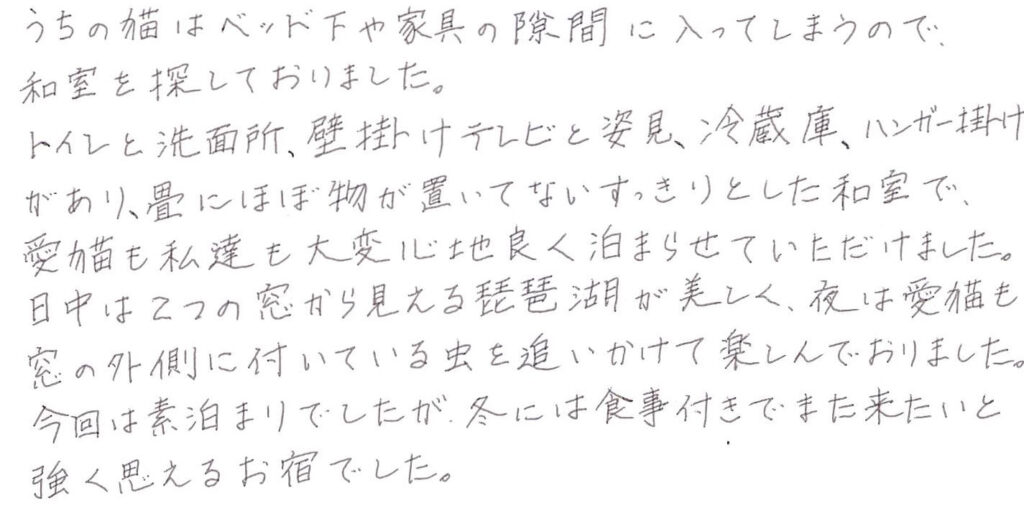 うちの猫はベッド下や家具の隙間に入ってしまうので、
和室を探しておりました。
トイレと洗面所、壁掛けテレビと姿見、冷蔵庫、ハンガー掛け
があり、畳にほぼ物が置いてないすっきりとした和室で、
愛猫も私達も大変心地良く泊まらせていただけました。
日中は2つの窓から見える琵琶湖が美しく、夜は愛猫も
窓の外側に付いている虫を追いかけて楽しんでおりました。
今回は素泊まりでしたが、冬には食事付きでまた来たいと
強く思えるお宿でした。